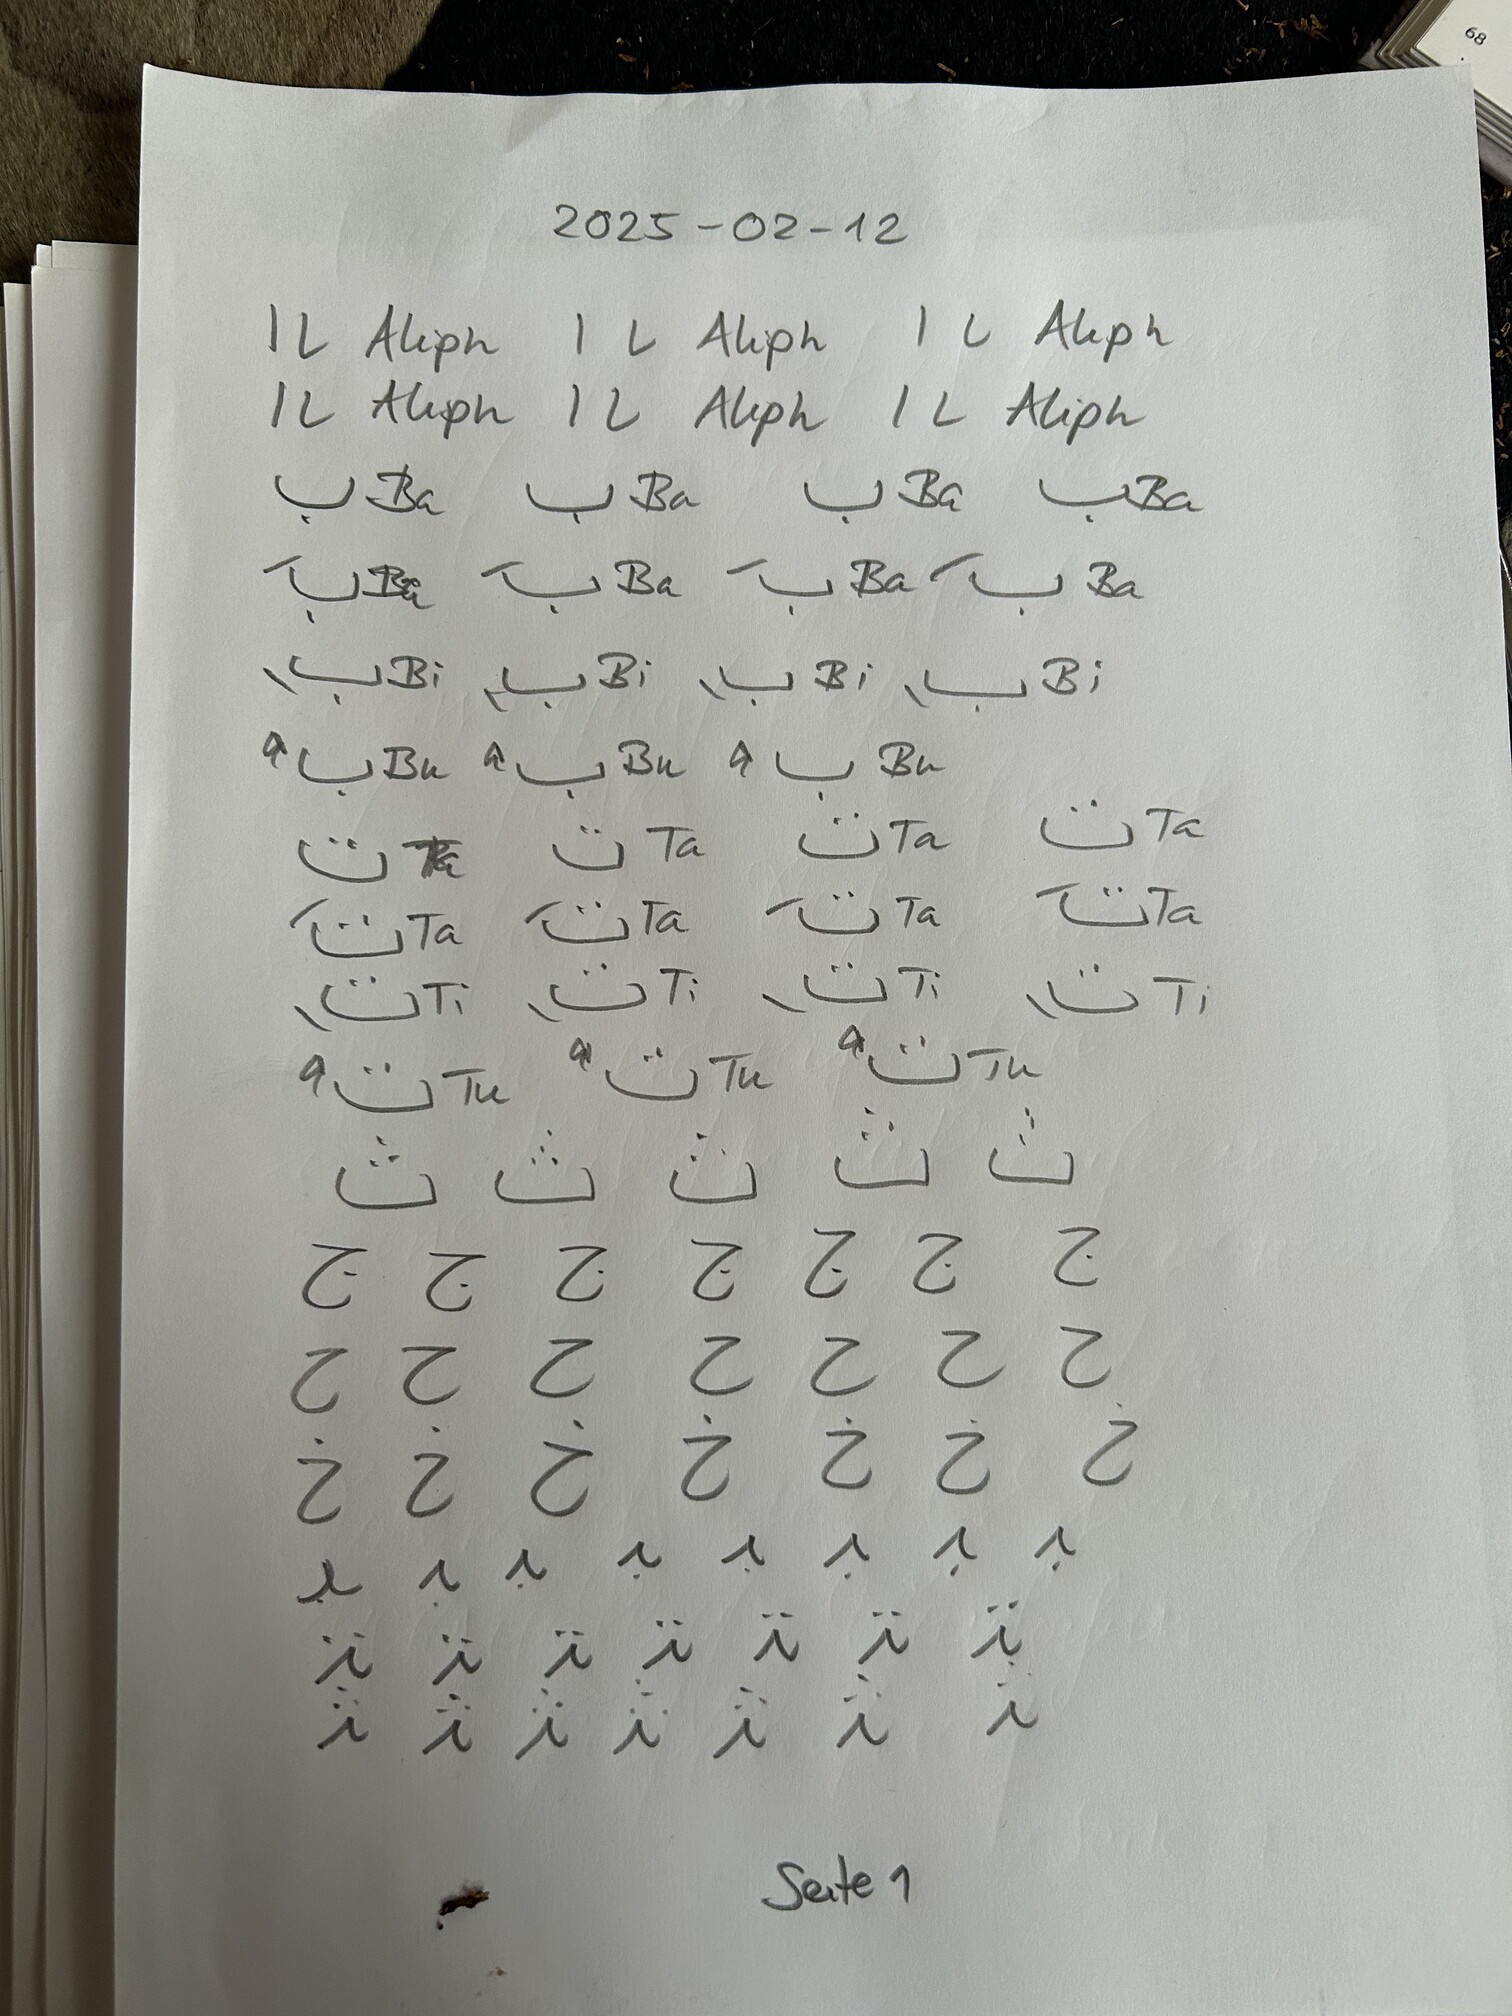 68
2025-02-12
ا ل Aliph ا ل Aliph ا ل Aliph
ا ل Aliph ا ل Aliph ا ل Aliph
ب Ba ب Ba ب Ba ب Ba
بَ Ba بَ Ba بَ Ba بَ Ba
بِ Bi بِ Bi بِ Bi بِ Bi
بُ Bu بُ Bu بُ Bu
ت Ta ت Ta ت Ta ت Ta
تَ Ta تَ Ta تَ Ta تَ Ta
تِ Ti تِ Ti تِ Ti تِ Ti
تُ Tu تُ Tu تُ Tu
ث ث ث ث ث
ج ج ج ج ج ج ج
ح ح ح ح ح ح ح
خ خ خ خ خ خ خ
Seite 1